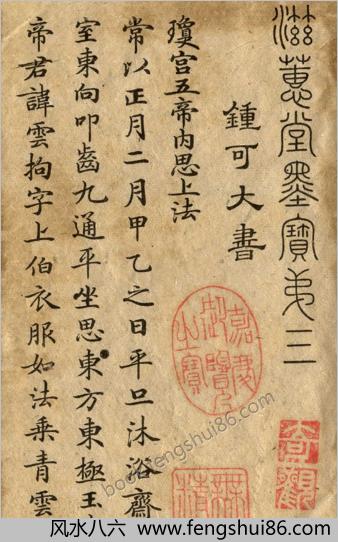 滋蕙堂墨寶弟三
鍾可大書
瓊宮五帝内思上法
常以正月二月甲乙之日平旦沐浴齋
室東向叩齒九通平坐思東方東極玉
帝君諱雲拘字上伯衣服如法乘青雲
嘉慶御覽之寶
bookfengshui86.com
风水八六 www.fengshui86.com